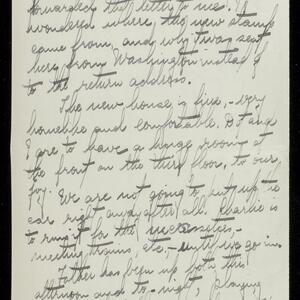 forwarded this letter to me. I
wondered where the new stamp
came from, and why it was sent
here from Washington instead of
to the return address.
The new house is fine, - very
homelike and comfortable. & I and
I are to have a huge room at
the front on the third floor, to our
joy. We are not going to put up the
car right away after all. Charlie is
to run it for the necessities, -
meeting trains, etc., - until we go in.
Father has been up both this
afternoon and to-night, playing